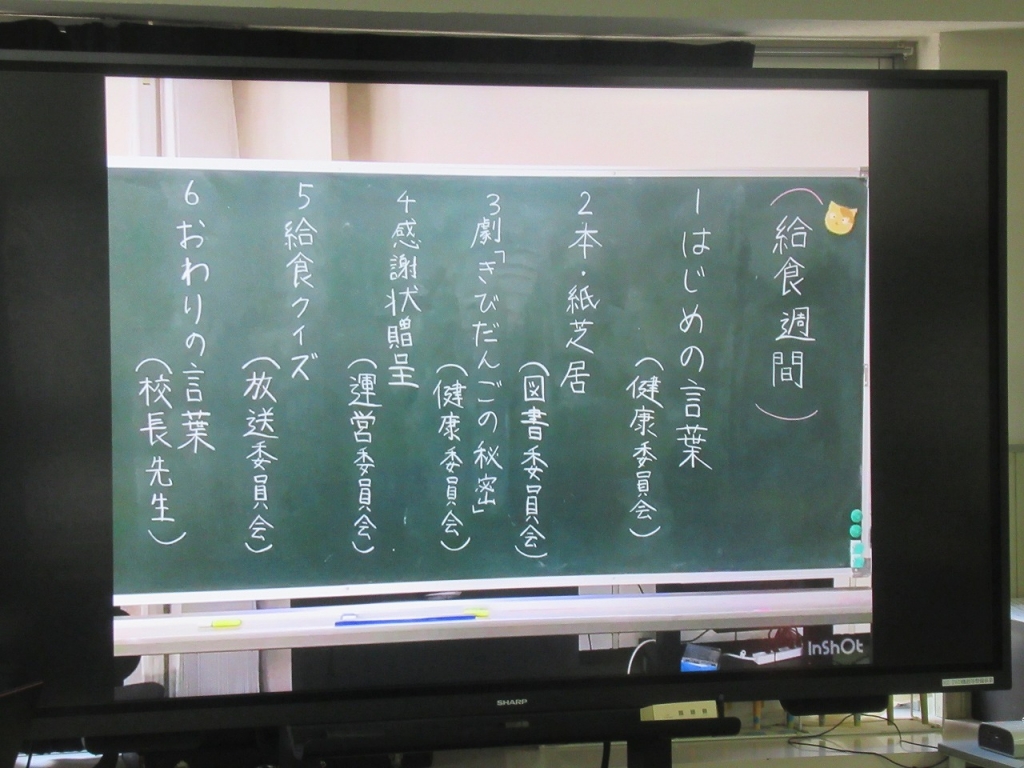 (給食週間)
1 はじめの言葉
(健康委員会)
2 本・紙芝居
(図書委員会)
3 劇「きびだんごの秘密」
(健康委員会)
4 感謝状贈呈
(運営委員会)
5 給食クイズ
(放送委員会)
6 おわりの言葉
(校長先生)
InShOt
SHARP